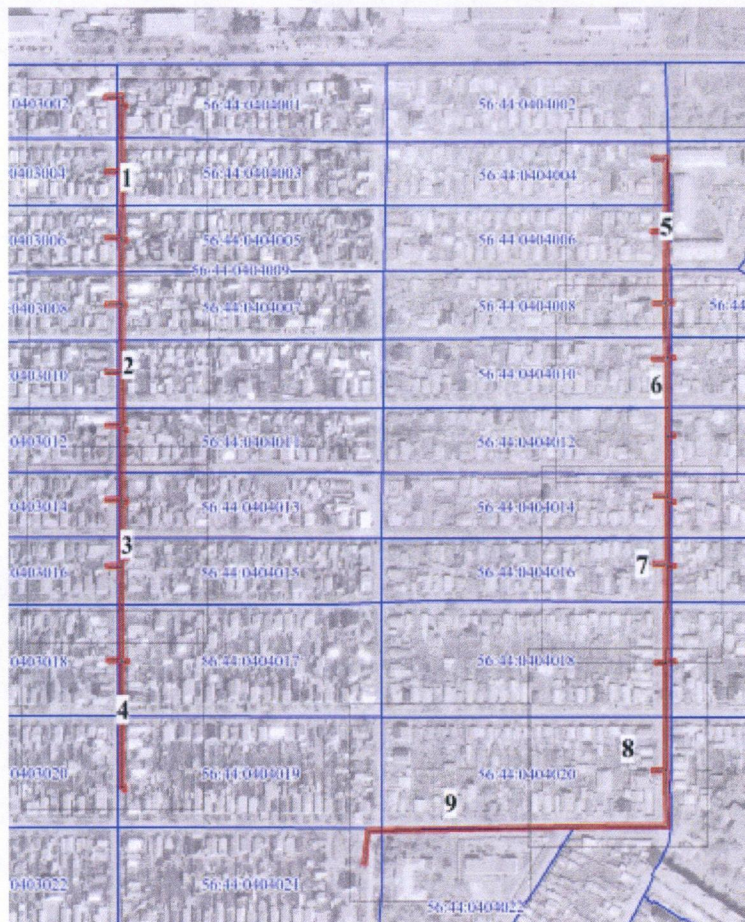 0403002 56:44:0404001 56:44:0404002
0403004 1 56:44:0404003 56:44:0404004
5
0403006 56:44:0404005 56:44:0404006
56:44:0404009
0403008 56:44:0404007 56:44:0404008 56:44
2
0403010 56:44:0404010
6
0403012 56:44:0404011 56:44:0404012
0403014 56:44:0404013 56:44:0404014
3
0403016 56:44:0404015 56:44:0404016 7
0403018 56:44:0404017 56:44:0404018
4
8
0403020 56:44:0404019 56:44:0404020
9
0403022 56:44:0404021
56:44:0404022